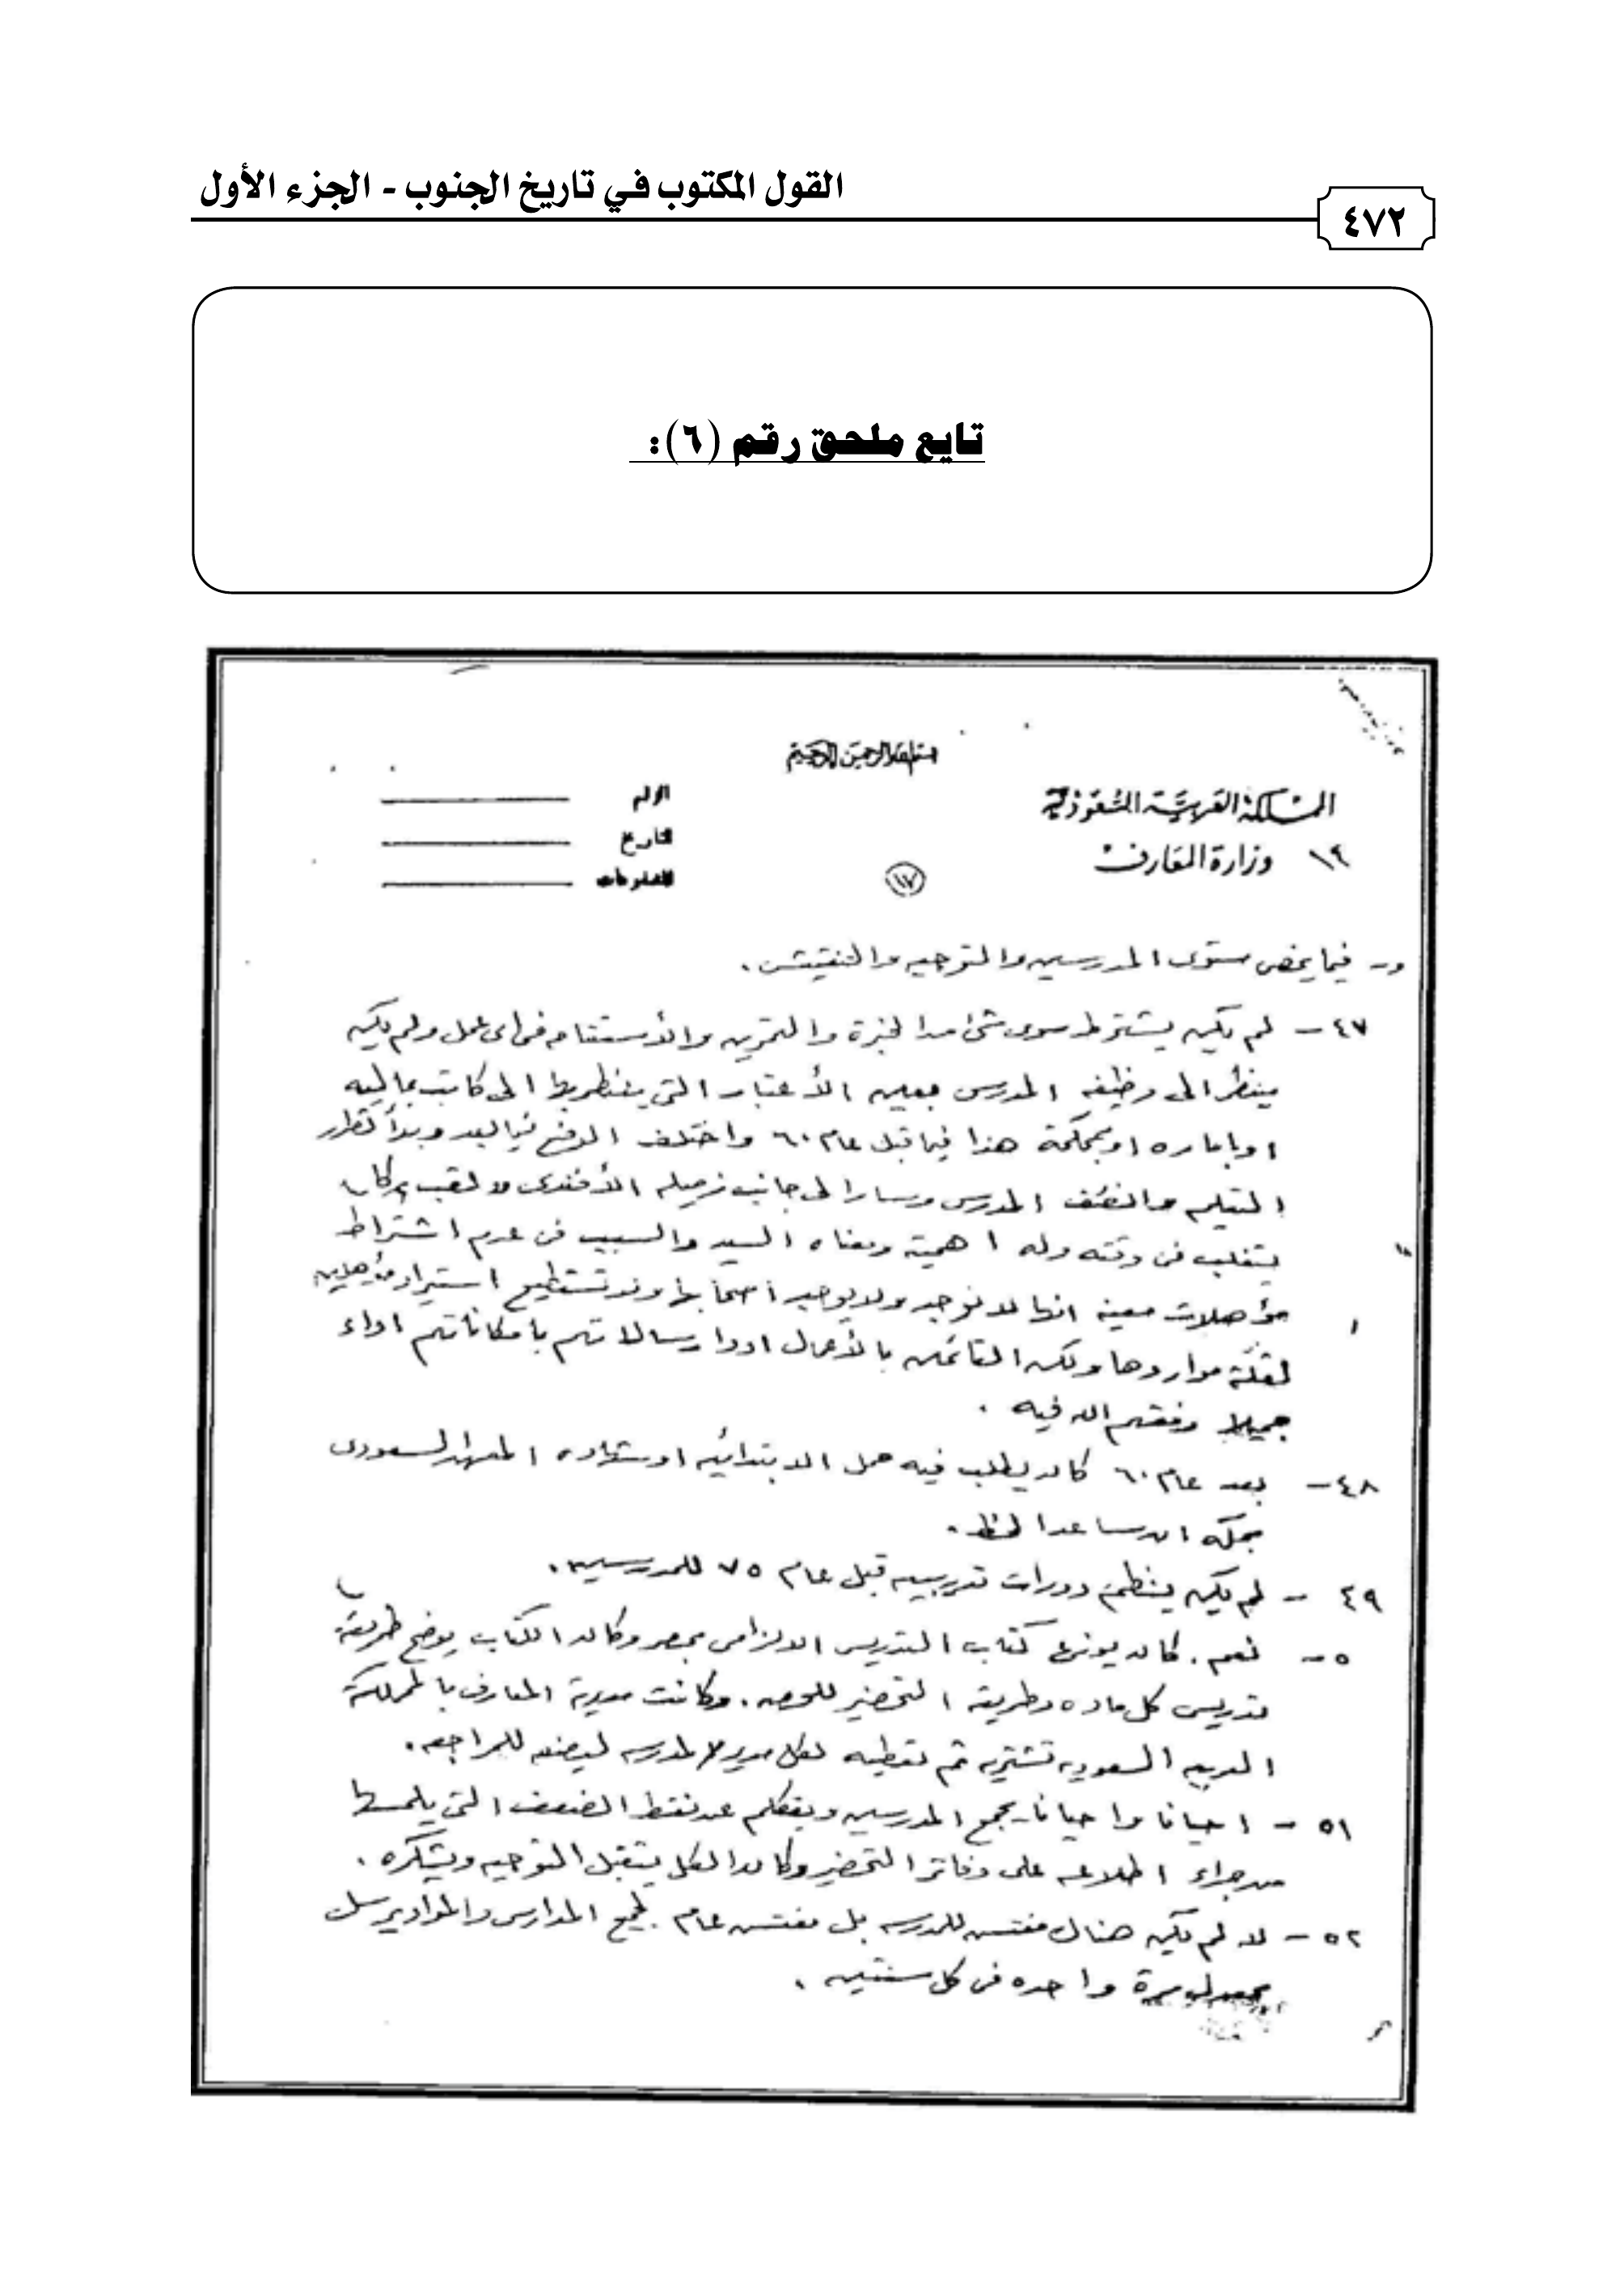 القول المكتوب في تاريخ الجنوب - الجزء الأول
٤٧٢
تابع ملحق رقم (٦):
بسم الله الرحمن الرحيم
المملكة العربية السعودية
وزارة المعارف
الرقم
التاريخ
المشفوعات
١٧
و- فيما يخص مستوى المدرسين والتوجيه والتفتيش .
٤٧- لم يكن يشترط سوى شئ من الخبرة والتمرين والأستقامه فى اى عمل ولم يكن
ينظر الى وظيفه المدرس بعين الأعتبار التى ينظر بها الى كاتب بماليه
او باماره او بمحكمة هذا فيما قبل عام ٦٠ واختلف الوضع فيما بعد وبدأ تطور
التعليم والمدرس وسار الى جانب زميله الأفندى ولقب
فى وقته وله اهمية ومعناه السيد والسبب فى عدم اشتراط
مؤهلات معينه انها لا توجد ولا يوجد اصحابها ولا تستطيع استيراد مؤهلين
لقلة مواردها ولكن القائمين بالأعمال ادوا رسالاتهم بامكاناتهم اداء
جميلا وفقهم الله فيه .
٤٨- بعد عام ٦٠ كان يطلب فيه حمل الابتدائيه او شهاده المعهد السعودى
بمكه ان ساعد الحظ .
٤٩- لم يكن ينظم دورات تدريبيه قبل عام ٧٥ للمدرسين .
٥٠- نعم . كان يوزع كتاب التدريس الالزامى بمصر وكان الكتاب يوضح طريقة
تدريس كل ماده وطريقه التحضير للحصه . وكانت مديرية المعارف بالمملكة
العربيه السعوديه تشتريه ثم تعطيه لكل مدير مدرسه ليضعه للمراجعه .
٥١- احيانا واحيانا يجمع المدرسين ويكلم عن نقط الضعف التى يلمسها
من جراء اطلاعه على دفاتر التحضير وكان الكل يتقبل التوجيه ويشكره .
٥٢- لا لم يكن هناك مفتش للمدرسه بل مفتش عام لجميع المدارس والمواد يرسل
بمعدل مرة واحده فى كل سنتين .